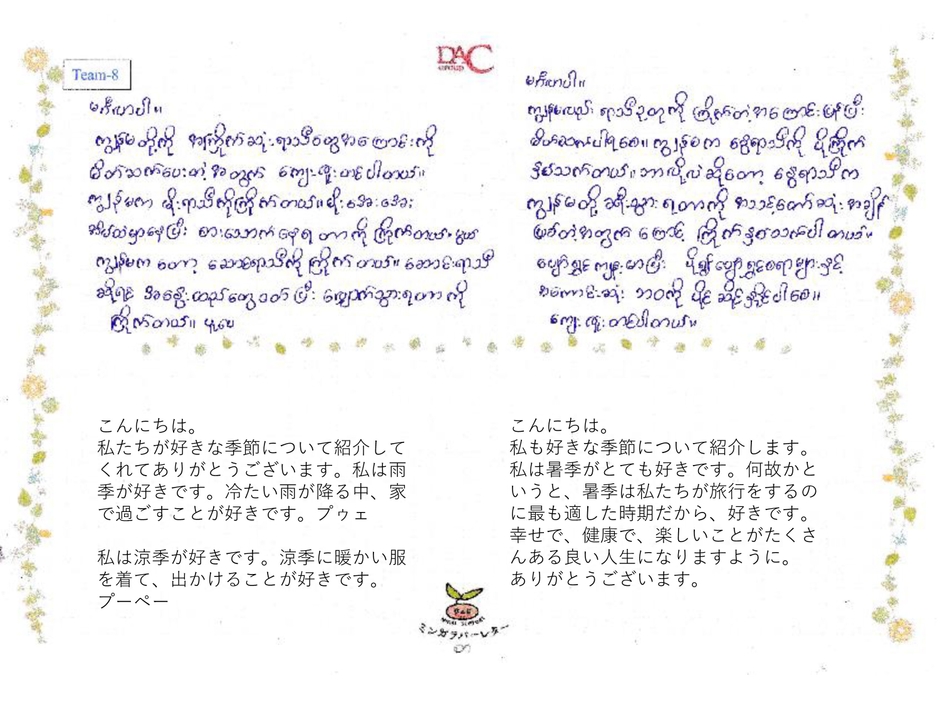 Team-8
DAC
မင်္ဂလာပါ။
ကျွန်မတို့ကို အကြိုက်ဆုံးရာသီတွေအကြောင်းကို
မိတ်ဆက်ပေးတဲ့အတွက် ကျေးဇူးတင်ပါတယ်။
ကျွန်မက မိုးရာသီကိုကြိုက်တယ်။ မိုးအေးအေး
အိမ်ထဲမှာနေပြီး စားသောက်နေရတာကို ကြိုက်တယ်။
ကျွန်မကတော့ ဆောင်းရာသီကို ကြိုက်တယ်။ ဆောင်းရာသီ
ဆိုရင် အနွေးထည်တွေဝတ်ပြီး လျှောက်သွားရတာကို
ကြိုက်တယ်။ ပူပေ
မင်္ဂလာပါ။
ကျွန်မလည်း ရာသီဥတုကို ကြိုက်တဲ့အကြောင်းပြန်ပြီး
မိတ်ဆက်ပါရစေ။ ကျွန်မက နွေရာသီကို ပိုကြိုက်
နှစ်သက်တယ်။ ဘာလို့လဲဆိုတော့ နွေရာသီက
ကျွန်မတို့ ခရီးသွားရတာကို အသင့်တော်ဆုံး အချိန်
ဖြစ်တဲ့အတွက်ကြောင့် ကြိုက်နှစ်သက်ပါတယ်။
ပျော်ရွှင်ကျန်းမာပြီး ပို၍ပျော်ရွှင်စရာများနှင့်
အကောင်းဆုံး ဘဝကို ပိုင်ဆိုင်နိုင်ပါစေ။
ကျေးဇူးတင်ပါတယ်။
こんにちは。
私たちが好きな季節について紹介して
くれてありがとうございます。私は雨
季が好きです。冷たい雨が降る中、家
で過ごすことが好きです。プゥェ
私は涼季が好きです。涼季に暖かい服
を着て、出かけることが好きです。
プーペー
こんにちは。
私も好きな季節について紹介します。
私は暑季がとても好きです。何故かと
いうと、暑季は私たちが旅行をするの
に最も適した時期だから、好きです。
幸せで、健康で、楽しいことがたくさ
んある良い人生になりますように。
ありがとうございます。
ミンガラバーレター